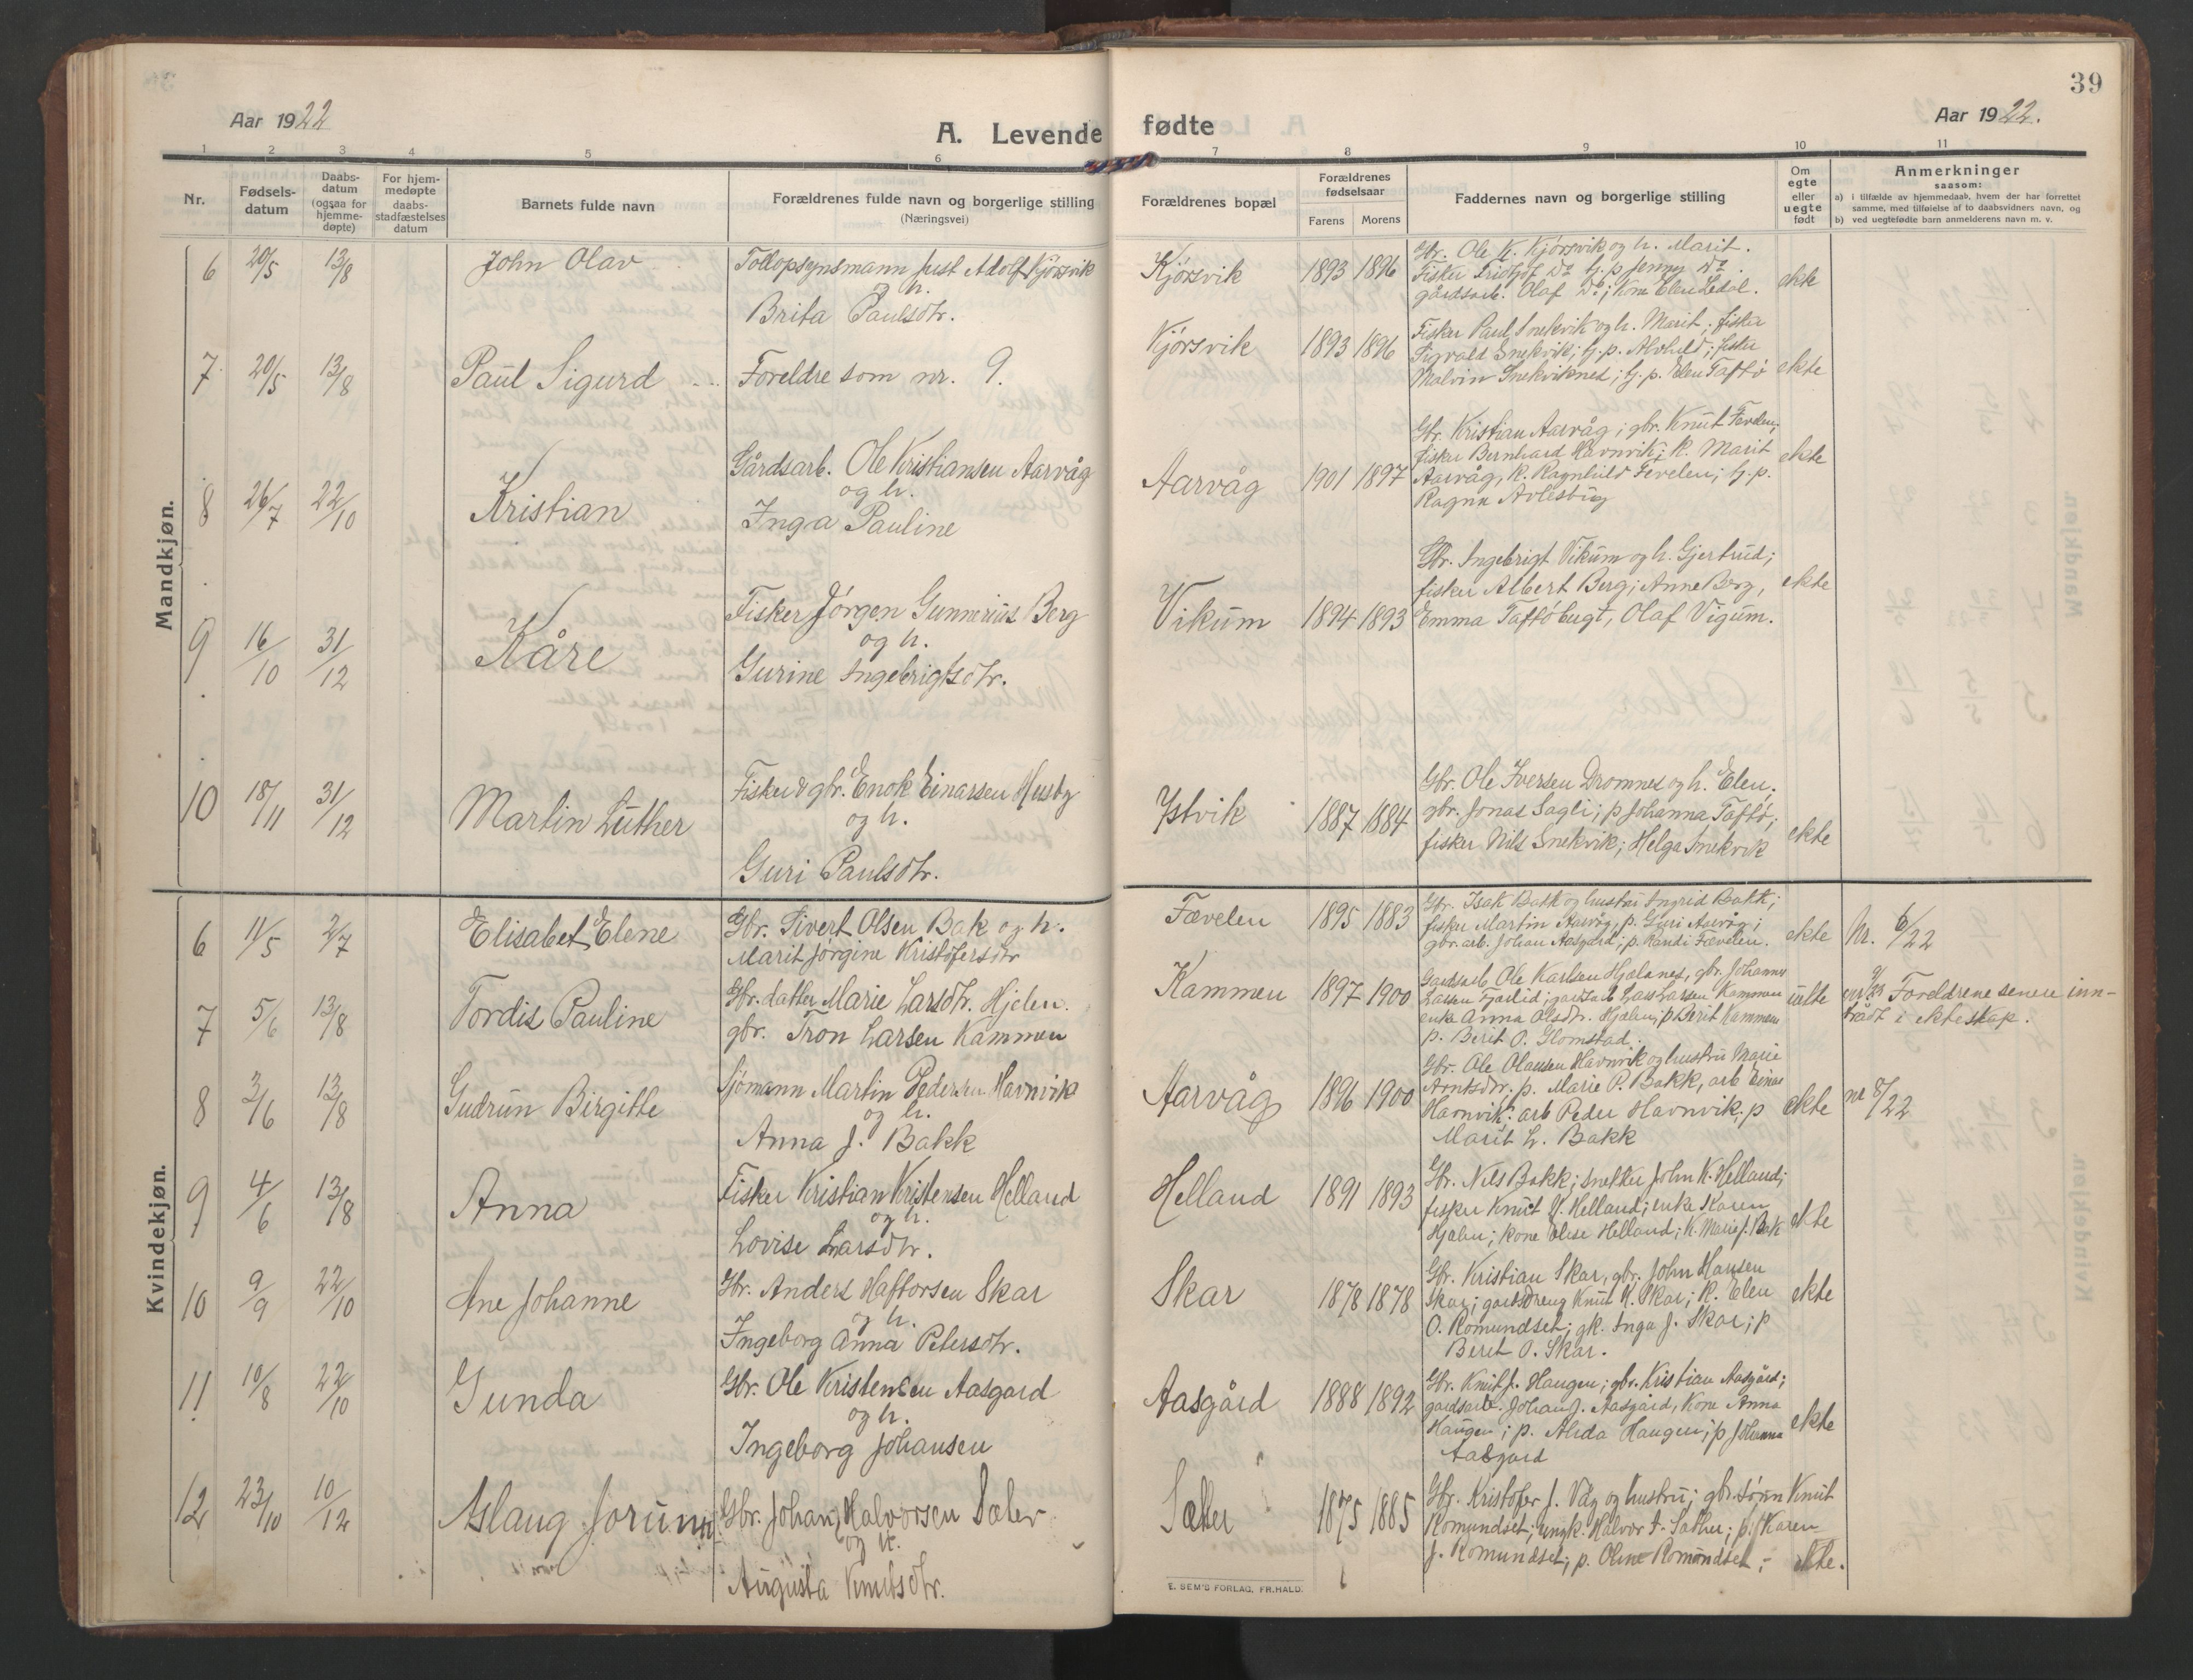 39
Aar 1922
A. Levende fødte
Aar 1922.
1 2 3 4 5 6 7 8 9 10 11
Nr.
Fødsels-
datum
Daabs-
datum
(ogsaa for
hjemme-
døpte)
For hjem-
medøpte
daabs-
stadfæstelses
datum
Barnets fulde navn
Forældrenes fulde navn og borgerlige stilling
(Næringsvei)
Forældrenes bopæl
Forældrenes
fødselsaar
Farens Morens
Faddernes navn og borgerlige stilling
Om
egte
eller
uegte
født
Anmerkninger
saasom:
a) i tilfælde av hjemmedaab, hvem der har forrettet
samme, med tilføielse af to daabsvidners navn, og
b) ved uegtefødte barn anmelderens navn m. v.
Mandkjøn.
6 20/5 13/8 John Olav
Tollopsynsmann Just Adolf Kjørsvik
og h.
Brita Paulsdtr.
Kjørsvik 1893 1896
Gbr. Ole K. Kjørsvik og h. Marit.
Fisker Fridtjof do tj. p Jenny do.
gårdsarb. Olaf do; Kone Elen Ledal.
ekte
7 20/5 13/8 Paul Sigurd
Foreldre som nr. 9.
Kjørsvik 1893 1896
Fisker Paul Snekvik og h. Marit; fisker
Sigvald Snekvik; tj. p. Alvhild; fisker
Malvin Snekviknes; tj. p. Elen Taftø
ekte
8 26/7 22/10 Kristian
Gårdsarb. Ole Kristiansen Aarvåg
og h.
Inga Pauline
Aarvåg 1901 1897
Gbr. Kristian Aarvåg; gbr. Knut Fevelen;
fisker Bernhard Havnvik; K. Marit
Aarvåg, K. Ragnhild Fevelen; tj. p.
Ragna
ekte
9 16/10 31/12 Kåre
Fisker Jørgen Gunnerius Berg
og h.
Gurine Ingebrigtsdtr.
Vikum 1894 1893
Gbr. Ingebrigt Vikum og h. Gjertrud;
fisker Albert Berg; Anne Berg,
Emma Taftøbugt, Olaf Vigum.
ekte
10 18/11 31/12 Martin Luther
Fisker & gbr. Enok Einarsen Husby
og h.
Guri Paulsdtr.
Ystvik 1887 1884
Gbr. Ole Iversen Dromnes og h. Elen;
gbr. Jonas Sagli; p Johanna Taftø;
fisker Nils Snekvik; Helga Snekvik
ekte
Kvindekjøn.
6 11/5 2/7 Elisabet Elene
Gbr. Sivert Olsen Bak og h.
Marit Jørgine Kristofersdtr
Fævelen 1895 1883
Gbr. Isak Bakk og hustru Ingrid Bakk;
fisker Martin Aarvåg, p. Guri Aarvåg;
gbr. arb. Johan Aasgård; p. Randi Fævelen.
ekte Nr. 6/22
7 5/6 13/8 Tordis Pauline
Gbr. datter Marie Larsdtr. Hjelen.
gbr. Tron Larsen Kammen
Kammen 1897 1900
Gardsarb Ole Karlsen Hjelanes, gbr. Johannes
Larsen Fjærlid; gardsarb Lars Larsen Kammen
enke Anna Olsdtr. Hjelen; p Berit Kammen
p. Berit O. Glomstad.
uekte
Foreldrene senere inn-
trådt i ekteskap.
8 3/6 13/8 Gudrun Birgitte
Sjømann Martin Pedersen Havnvik
og h.
Anna J. Bakk
Aarvåg 1896 1900
Gbr. Ole Olausen Havnvik og hustru Marie
Arntsdtr. p. Marie P. Bakk, arb Einar
Havnvik: arb Peder Havnvik; p
Marit L. Bakk
ekte nr 8/22
9 4/6 13/8 Anna
Fisker Kristian Kristensen Helland
og h.
Lovise Larsdtr.
Helland 1891 1893
Gbr. Nils Bakk; snekker John K. Helland;
fisker Knut J. Helland; enke Karen
Hjelen; kone Elise Helland; K. Marie J. Bak
ekte
10 9/9 22/10 Ane Johanne
Gbr. Anders Haftorsen Skar
og h.
Ingeborg Anna Petersdtr.
Skar 1878 1878
Gbr. Kristian Skar, gbr. John Hansen
Skar; gardsdreng Knut K. Skar; K. Elen
O. Romundset; gk. Inga J. Skar; p
Beret O. Skar.
ekte
11 10/8 22/10 Gunda
Gbr. Ole Kristensen Aasgard
og h.
Ingeborg Johansen
Aasgård 1888 1892
Gbr. Knut J. Haugen; gbr. Kristian Aasgård;
gardsarb. Johan J. Aasgård, Kone Anna
Haugen; p. Alida Haugen; p Johanna
Aasgard
ekte
12 23/10 10/12 Aslaug Jorunn
Gbr. Johan Halvorsen Sæter
og h.
Augusta Knutsdtr.
Sæter 1875 1885
Gbr. Kristofer J. Våg og hustru; gbr. sønn Knut
Romundset; ungk. Halvor J. Sæther; p. Karen
J. Romundset; p. Oline Romundset;
ekte.
E. SEM'S FORLAG, FR.HALD.